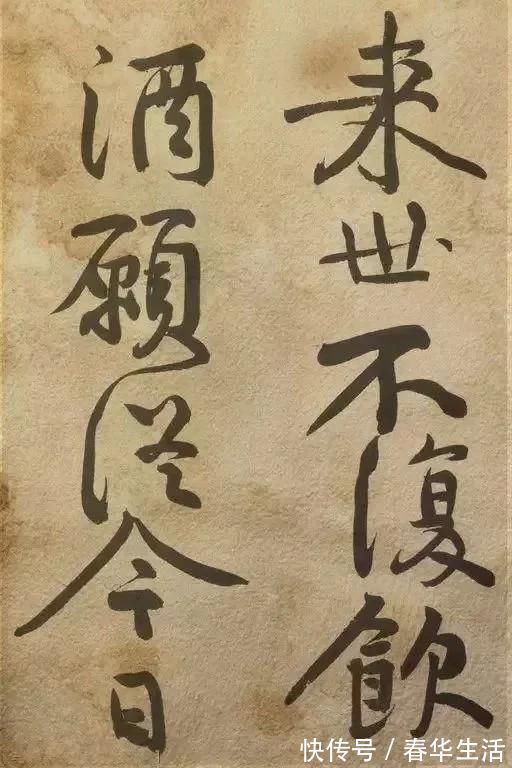 来世不復飲
酒願從今日
快传号 / 春华生活